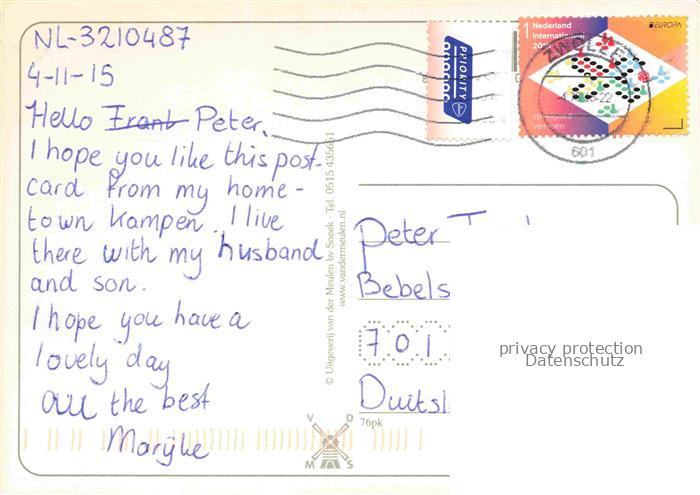 NL-3210487
4-11-15
Hello Frank Peter,
I hope you like this post-
card from my home-
town Kampen. I live
there with my husband
and son.
I hope you have a
lovely day
all the best
Marijke
PRIORITY
1 Nederland
Internationaal
EUROPA
ZWOLLE
601
© Uitgeverij van der Meulen bv Sneek - Tel. 0515 435661
www.vandermeulen.nl
Peter
Bebels
701
Duitsl
76pk
V D
M S
privacy protection
Datenschutz